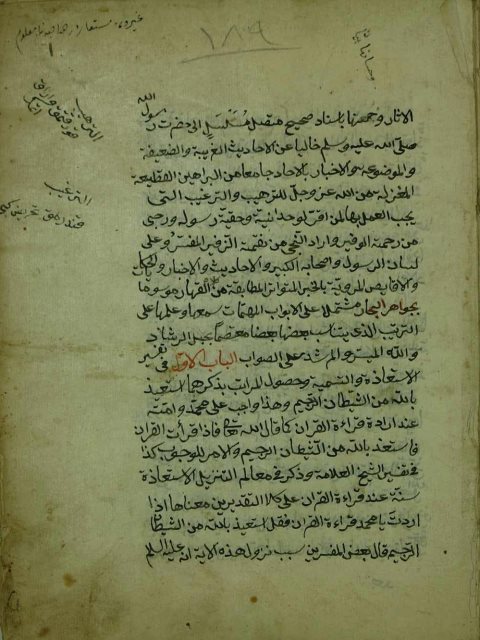 ١٨٩
الاثار وجمعتها باسناد صحيح متصل مسلسل الى حضرت رسول الله
صلى الله عليه وسلم خاليا عن الاحاديث الغريبة والضعيفة
والموضوعة والاخبار بالاحاد جامعا من البراهين القطعية
المنزلة من الله عز وجل للترهيب والترغيب التى
يجب العمل بها لمن اقر لوحدانيته وحقية رسوله ورجى
من رحمة الوفير واراد النجى من نقمة
لسان الرسول واصحابه الكبير والاحاديث والاخبار والحكايات
والاقاصيص المروية بالخبر المتواتر المطابقة من القران موسوما
بجواهر البحار مشتملا على الابواب المهمات سمعا وعلمها على
الترتيب الذى يتناسب بعضها بعضا معتصما بحبل الرشاد
والله الميسر والمرشد على الصواب الباب الاول فى تفسير
الاستعاذة والتسمية وحصول المراتب بذكرهما استعيذ
بالله من الشيطان الرجيم وهذا واجب على محمد وامته
عند ارادة قراءة القران كما قال الله تعالى فاذا قرأت القران
فاستعذ بالله من الشيطان الرجيم والامر للوجوب كذا
فى تفسير الشيخ العلامة وذكر فى معالم التنزيل الاستعاذة
سنة عند قراءة القران على كلا التقديرين معناها اذا
اردت يا محمد قراءة القران فقل استعيذ بالله من الشيطان
الرجيم قال بعض المفسرين سبب نزول هذه الاية انه عليه السلم
الترهيب
الترغيب